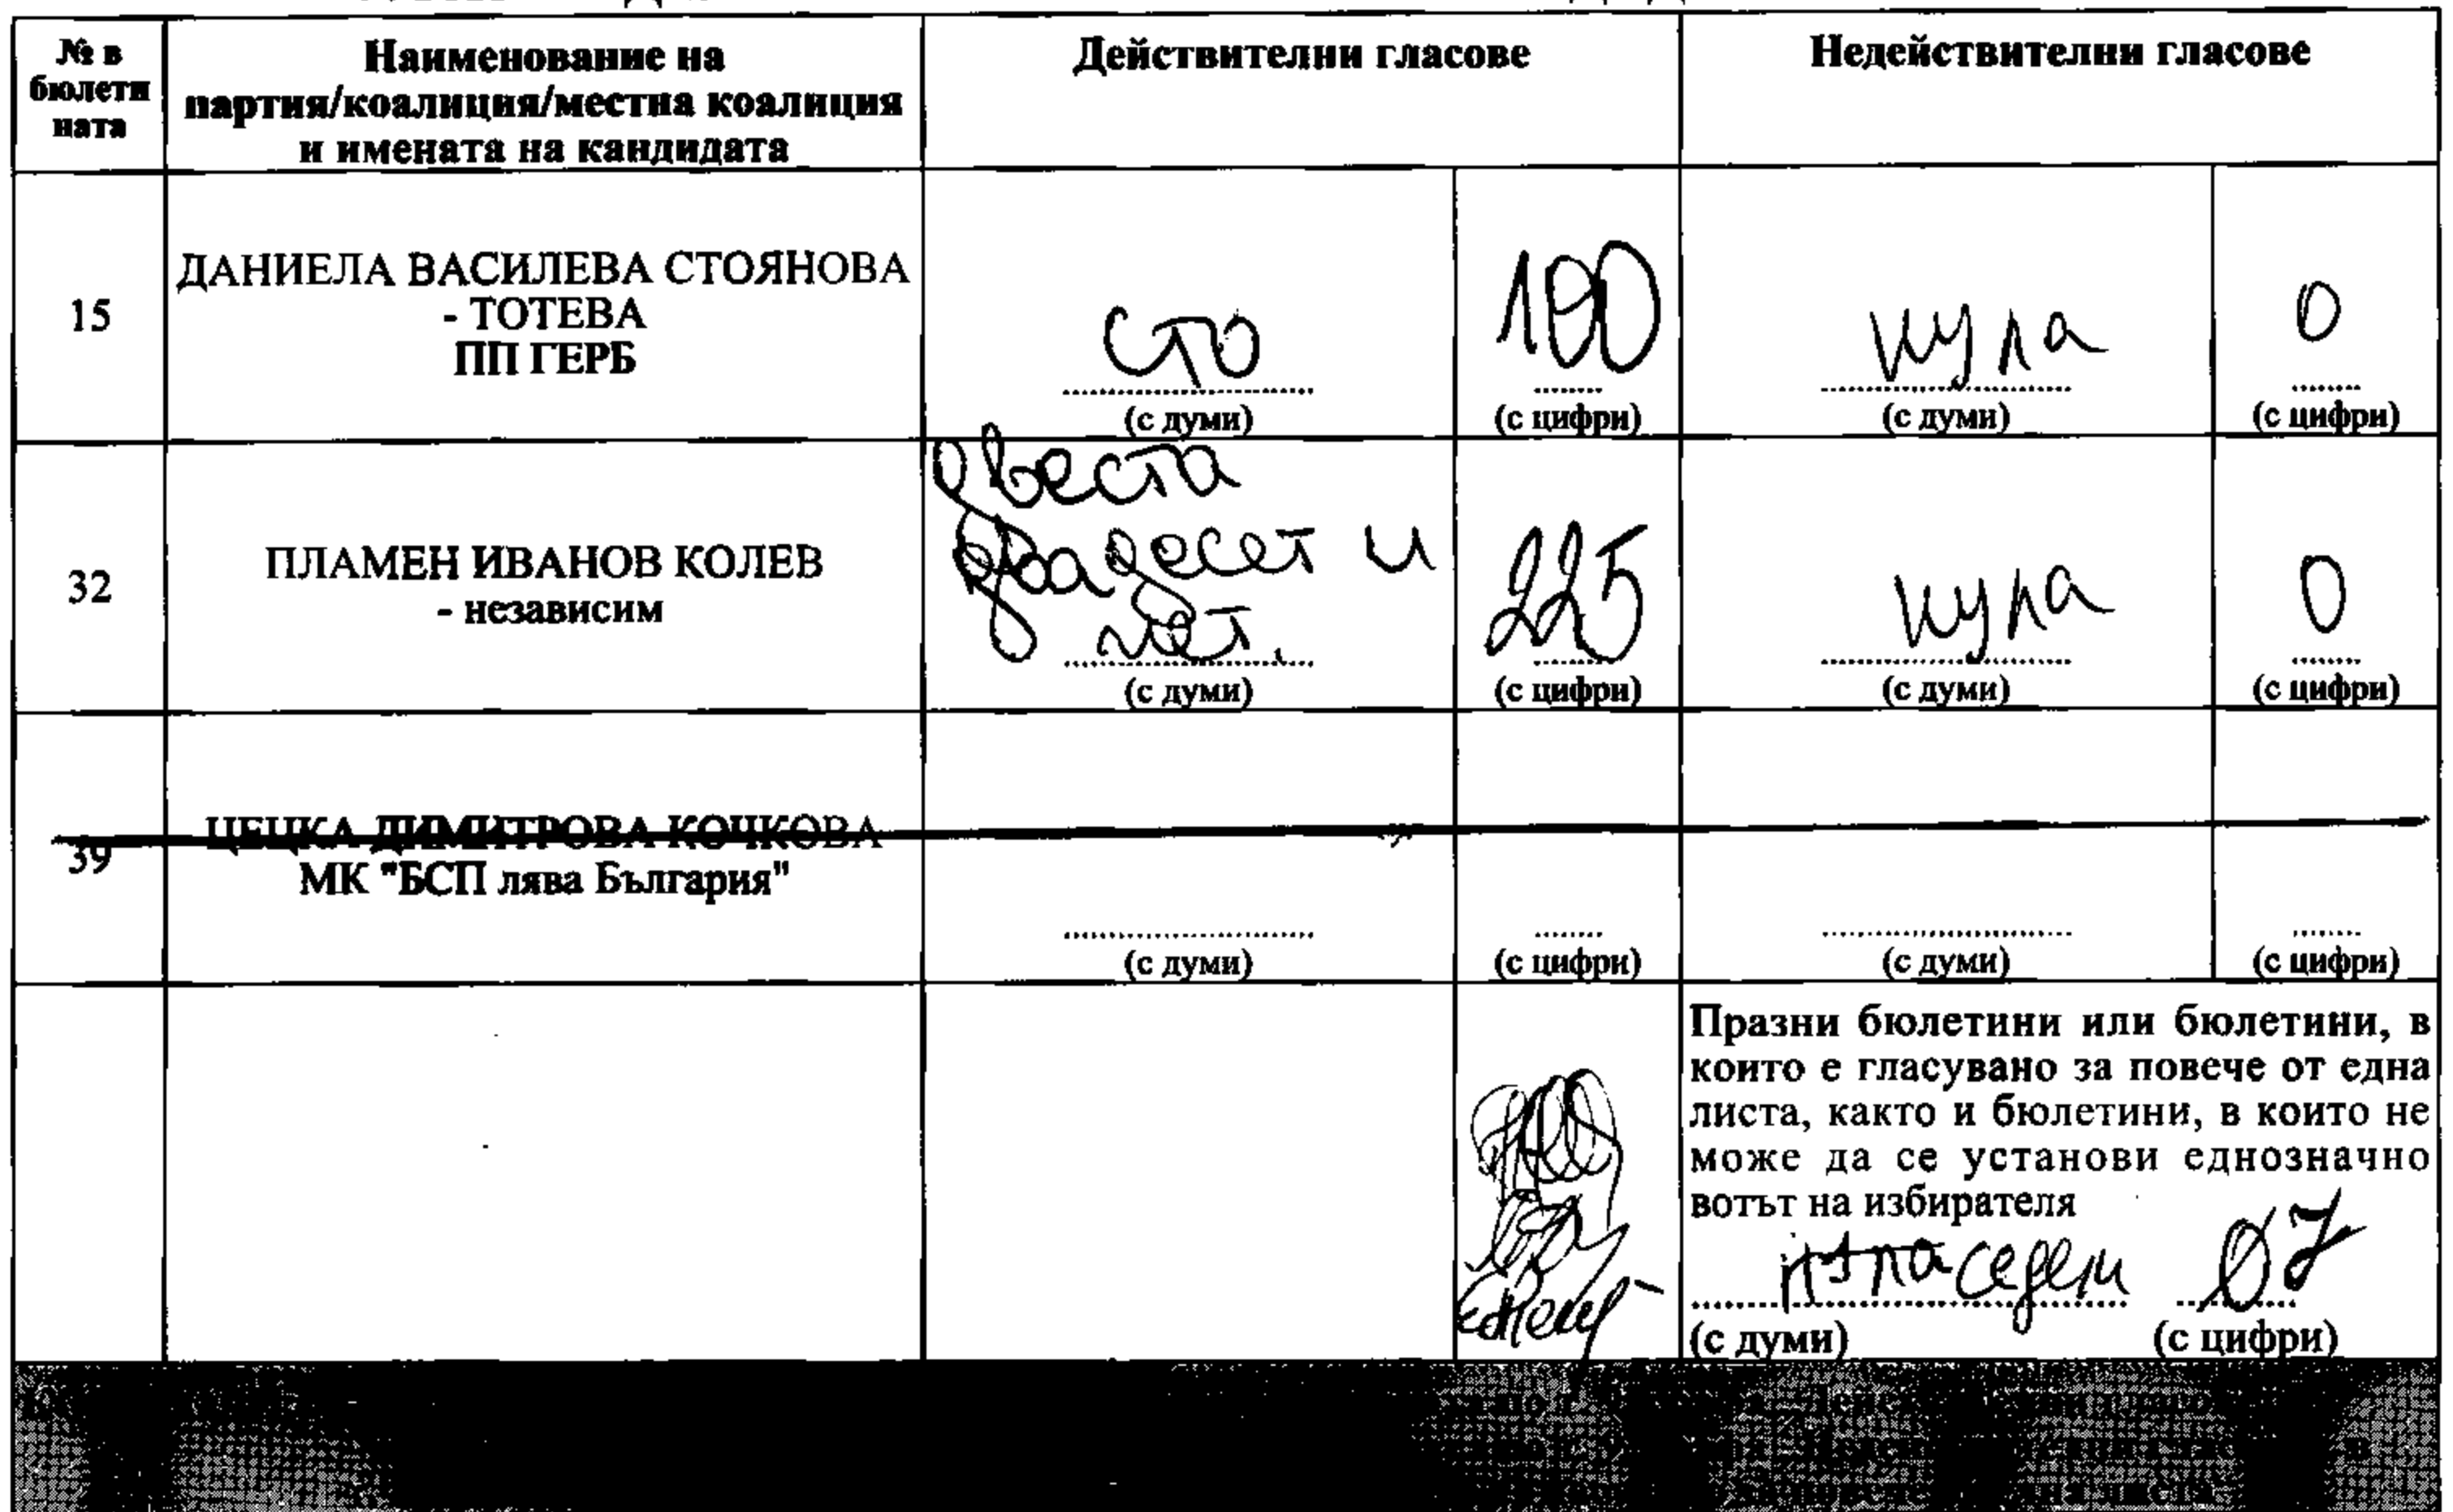 № в бюлети ната
Наименование на партия/коалиция/местна коалиция и имената на кандидата
Действителни гласове
Недействителни гласове
15
ДАНИЕЛА ВАСИЛЕВА СТОЯНОВА
- ТОТЕВА
ПП ГЕРБ
сто
(с думи)
100
(с цифри)
нула
(с думи)
0
(с цифри)
32
ПЛАМЕН ИВАНОВ КОЛЕВ
- независим
двеста
двадесет и
пет.
(с думи)
225
(с цифри)
нула
(с думи)
0
(с цифри)
39
ЦЕЦКА ДИМИТРОВА КОЧКОВА
МК "БСП лява България"
(с думи)
(с цифри)
(с думи)
(с цифри)
Празни бюлетини или бюлетини, в
които е гласувано за повече от една
листа, както и бюлетини, в които не
може да се установи еднозначно
вотът на избирателя
седем
07
(с думи)
(с цифри)